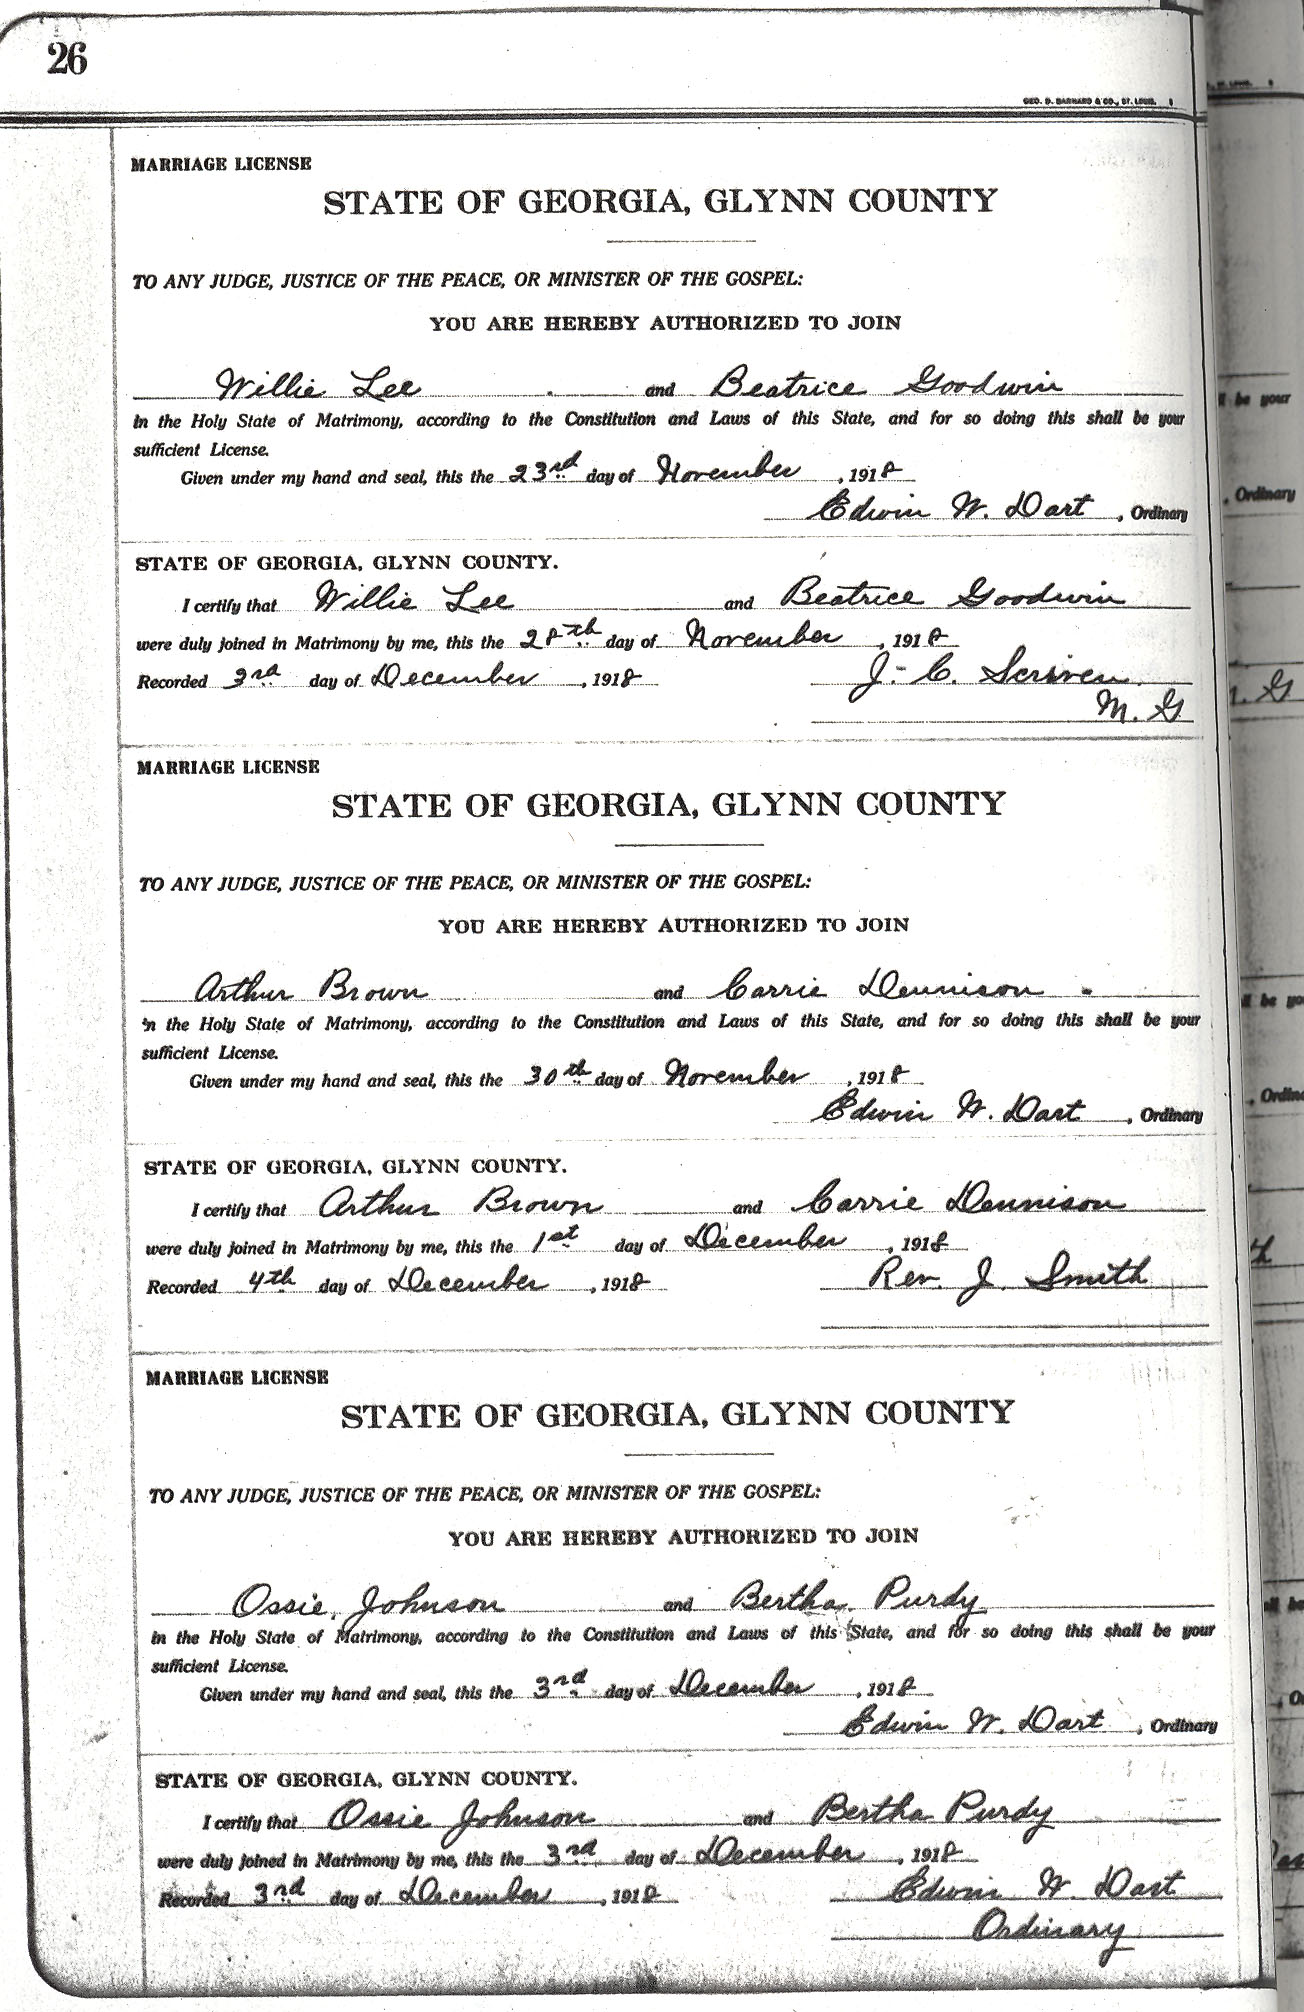 26
GEO. D. BARNARD & CO., ST. LOUIS.
MARRIAGE LICENSE
STATE OF GEORGIA, GLYNN COUNTY
TO ANY JUDGE, JUSTICE OF THE PEACE, OR MINISTER OF THE GOSPEL:
YOU ARE HEREBY AUTHORIZED TO JOIN
Willie Lee and Beatrice Goodwin
in the Holy State of Matrimony, according to the Constitution and Laws of this State, and for so doing this shall be your
sufficient License.
Given under my hand and seal, this the 23rd day of November, 1918
Edwin W. Dart, Ordinary
STATE OF GEORGIA, GLYNN COUNTY.
I certify that Willie Lee and Beatrice Goodwin
were duly joined in Matrimony by me, this the 28th day of November, 1918
Recorded 3rd day of December, 1918 J. C. Scriven
M. G
MARRIAGE LICENSE
STATE OF GEORGIA, GLYNN COUNTY
TO ANY JUDGE, JUSTICE OF THE PEACE, OR MINISTER OF THE GOSPEL:
YOU ARE HEREBY AUTHORIZED TO JOIN
Arthur Brown and Carrie Dennison
in the Holy State of Matrimony, according to the Constitution and Laws of this State, and for so doing this shall be your
sufficient License.
Given under my hand and seal, this the 30th day of November, 1918
Edwin W. Dart, Ordinary
STATE OF GEORGIA, GLYNN COUNTY.
I certify that Arthur Brown and Carrie Dennison
were duly joined in Matrimony by me, this the 1st day of December, 1918
Recorded 4th day of December, 1918 Rev. J. Smith
MARRIAGE LICENSE
STATE OF GEORGIA, GLYNN COUNTY
TO ANY JUDGE, JUSTICE OF THE PEACE, OR MINISTER OF THE GOSPEL:
YOU ARE HEREBY AUTHORIZED TO JOIN
Ossie Johnson and Bertha Purdy
in the Holy State of Matrimony, according to the Constitution and Laws of this State, and for so doing this shall be your
sufficient License.
Given under my hand and seal, this the 3rd day of December, 1918
Edwin W. Dart, Ordinary
STATE OF GEORGIA, GLYNN COUNTY.
I certify that Ossie Johnson and Bertha Purdy
were duly joined in Matrimony by me, this the 3rd day of December, 1918
Recorded 3rd day of December, 1918 Edwin W. Dart
Ordinary
be your
, Ordinary
. G